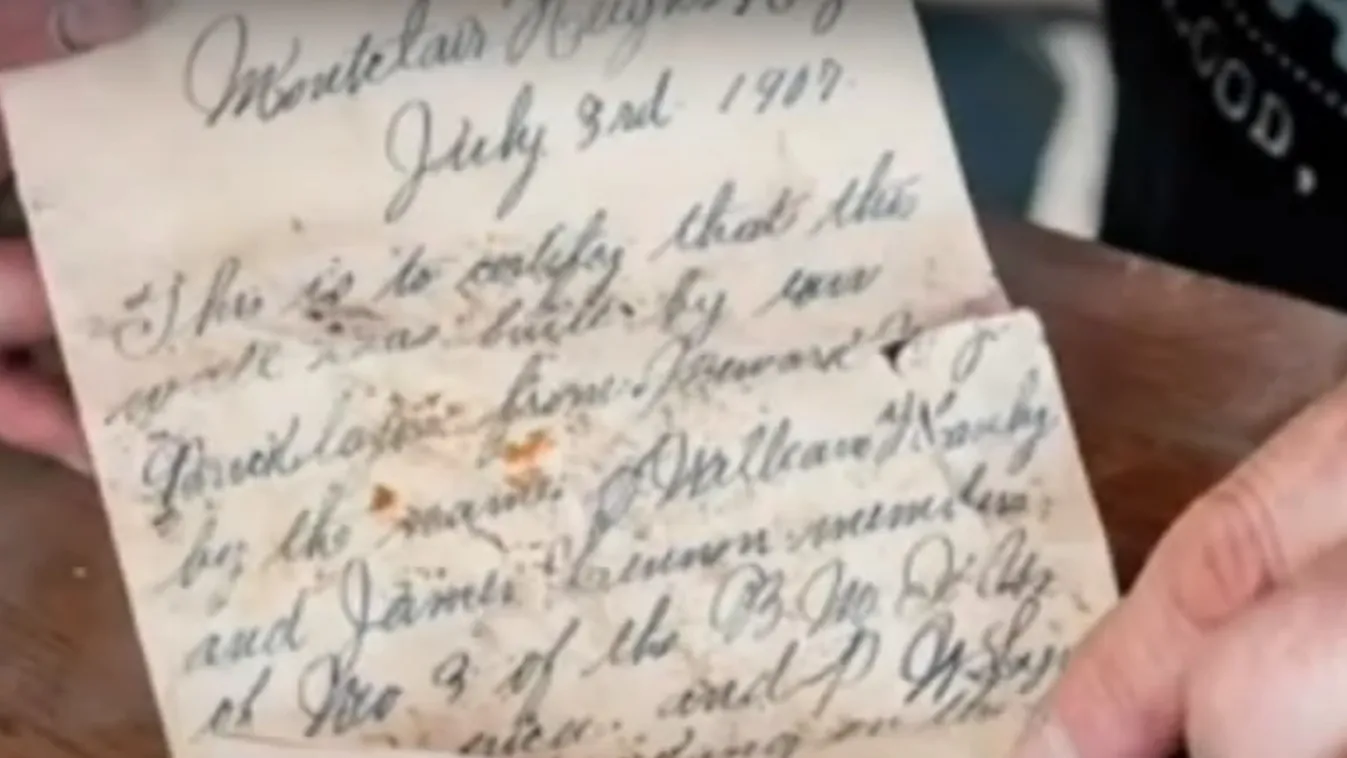 Montclair Heights N.J.
July 3rd 1907.
This is to certify that this
was built by two
Bricklayers from Newark N.J
by the names of William Hanly
and James Lennon members
of No. 3 of the B. M. P.
and
GOD,